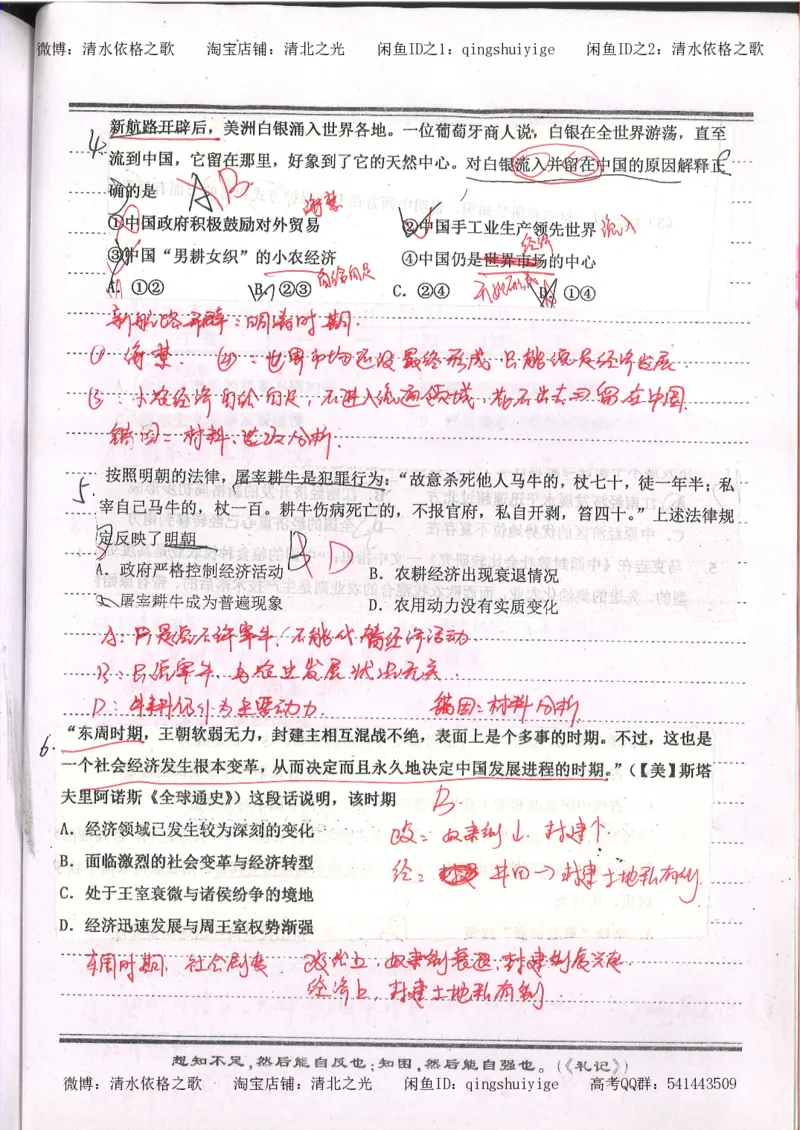 微博：清水依格之歌 淘宝店铺：清北之光 闲鱼ID之1：qingshuiyige 闲鱼ID之2：清水依格之歌
4. 新航路开辟后，美洲白银涌入世界各地。一位葡萄牙商人说，白银在全世界游荡，直至
流到中国，它留在那里，好象到了它的天然中心。对白银流入并留在中国的原因解释正
确的是 A B
海禁
①中国政府积极鼓励对外贸易 ②中国手工业生产领先世界 流入
经济
③中国“男耕女织”的小农经济 ④中国仍是世界市场的中心
自给自足
A. ①② B. ②③ C. ②④ D. ①④
新航路开辟：明清时期.
① 海禁. ④：世界市场还没最终形成,只能说是经济发展.
③：小农经济自给自足，不进入流通领域，故不出去而留在中国.
错因：材料、层次分析.
5. 按照明朝的法律，屠宰耕牛是犯罪行为：“故意杀死他人马牛的，杖七十，徒一年半；私
宰自己马牛的，杖一百。耕牛伤病死亡的，不报官府，私自开剥，笞四十。”上述法律规
定反映了明朝 B D
A．政府严格控制经济活动 B．农耕经济出现衰退情况
C．屠宰耕牛成为普遍现象 D．农用动力没有实质变化
A：只是说不许宰牛，不能代替经济活动
B：只点宰牛，与农业发展状况无关.
D：牛耕仍为主要动力. 错因：材料分析.
6. “东周时期，王朝软弱无力，封建主相互混战不绝，表面上是个多事的时期。不过，这也是
一个社会经济发生根本变革，从而决定而且永久地决定中国发展进程的时期。”（【美】斯塔
夫里阿诺斯《全球通史》）这段话说明，该时期 B
A．经济领域已发生较为深刻的变化
政：奴隶制↓ 封建↑
B．面临激烈的社会变革与经济转型
经：井田→封建土地私有制.
C．处于王室衰微与诸侯纷争的境地
D．经济迅速发展与周王室权势渐强
东周时期，社会剧变. 政治上，奴隶制衰退，封建制度兴起.
经济上，封建土地私有制
想知不足，然后能自反也；知困，然后能自强也。（《礼记》）
微博：清水依格之歌 淘宝店铺：清北之光 闲鱼ID：qingshuiyige 高考QQ群：541443509